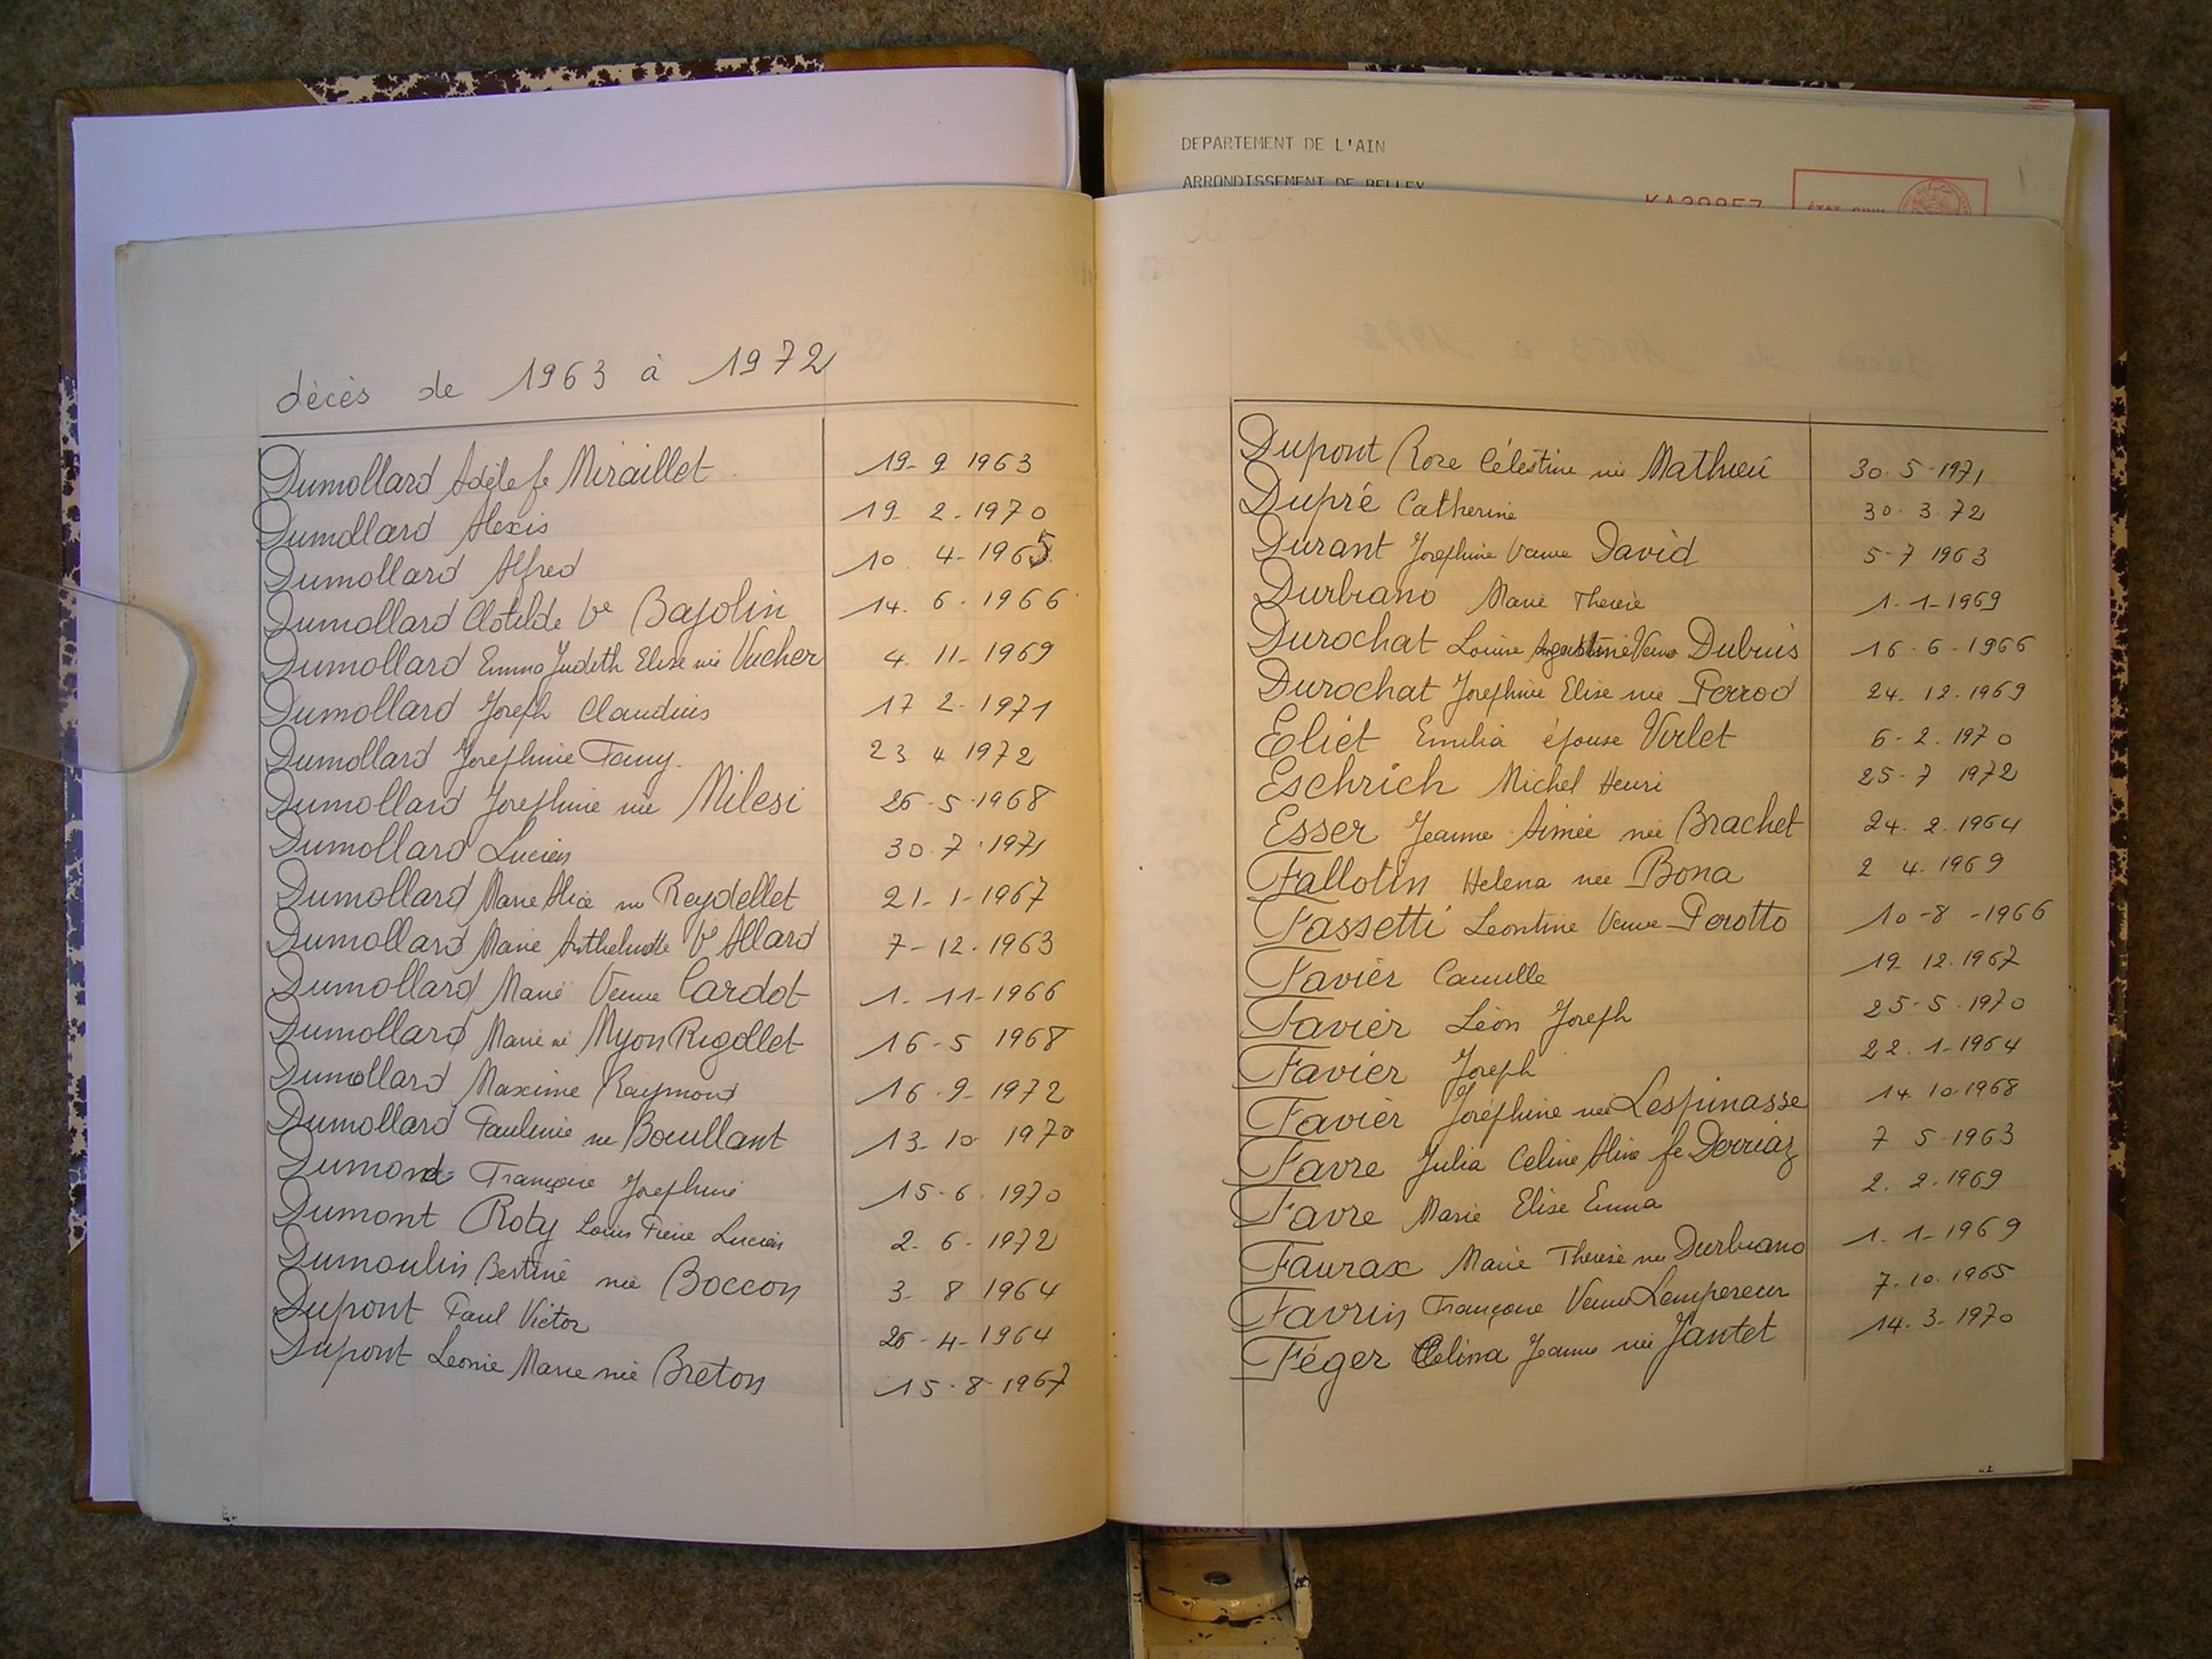 décès de 1963 à 1972
Dumollard Adèle fe Miraillet 19-9 1963
Dumollard Alexis 19-2-1970
Dumollard Alfred 10.4-1965
Dumollard Clotilde Ve Bajolin 14.6.1966
Dumollard Emma Judith Elise née Vucher 4.11-1969
Dumollard Joseph Claudius 17 2-1971
Dumollard Josephine Fany. 23 4 1972
Dumollard Josephine née Milesi 26-5-1968
Dumollard Lucien 30.7.1971
Dumollard Marie Alice née Reydellet 21-1-1967
Dumollard Marie Anthelmette Ve Allard 7-12.1963
Dumollard Marie Veuve Cardot 1.11-1966
Dumollard Marie né Myon Rigollet 16-5 1968
Dumollard Maxime Raymond 16.9-1972
Dumollard Pauline née Bouillant 13-10 1970
Dumond Françoise Josephine 15.6.1970
Dumont Roty Louis Pierre Lucien 2.6-1972
Dumoulin Bertine née Boccon 3-8 1964
Dupont Paul Victor 26-4-1964
Dupont Leonie Marie née Breton 15-8-1967
DEPARTEMENT DE L'AIN
ARRONDISSEMENT DE BELLEY
KA39857
ÉTAT CIVIL
Dupont Rose Célestine née Mathieu 30.5-1971
Dupré Catherine 30.3.72
Durant Josephine Veuve David 5-7 1963
Durbiano Marie Therese 1.1-1969
Durochat Louise Augustine Veuve Dubuis 16-6-1966
Durochat Josephine Elise née Perrod 24.12.1969
Eliet Emilia épouse Virlet 6-2.1970
Eschrich Michel Henri 25-7 1972
Esser Jeanne Aimée née Brachet 24.2.1964
Fallotin Helena née Bona 2 4.1969
Fassetti Leontine Veuve Perotto 10-8-1966
Favier Camille 19.12.1967
Favier Léon Joseph 25-5.1970
Favier Joseph 22.1-1964
Favier Joséphine née Lespinasse 14.10.1968
Favre Julia Celine Aline fe Dorriaz 7 5.1963
Favre Marie Elise Emma 2.2.1969
Faurax Marie Therese née Durbiano 1.1-1969
Favrin Françoise Veuve Lempereur 7.10.1965
Féger Célina Jeanne née Jantet 14.3-1970